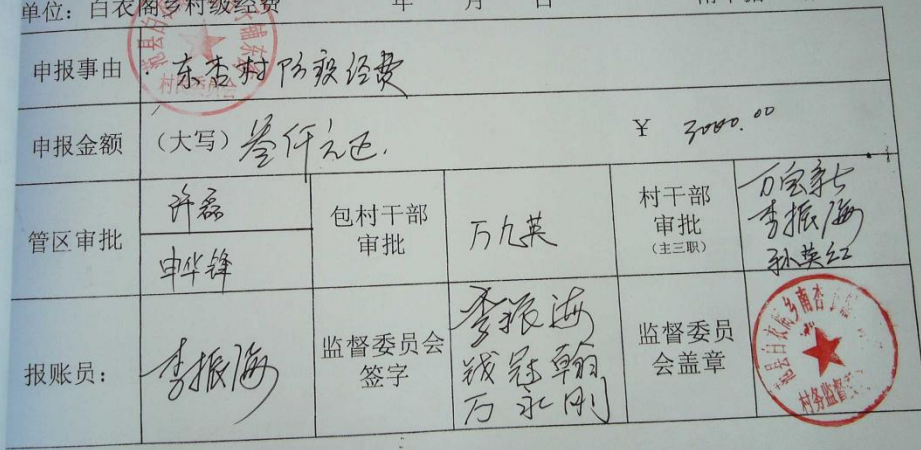 单位：白衣阁乡村级经费 年 月 日
申报事由 东杏村防疫经费
申报金额 （大写）叁仟元正. ￥ 3000.00
管区审批 许磊 申华锋
包村干部审批 万九英
村干部审批（主三职） 万宝新 李振海 孙英红
报账员： 李振海
监督委员会签字 李振海 钱冠翰 万永刚
监督委员会盖章
范县白衣阁乡南杏
村务监督